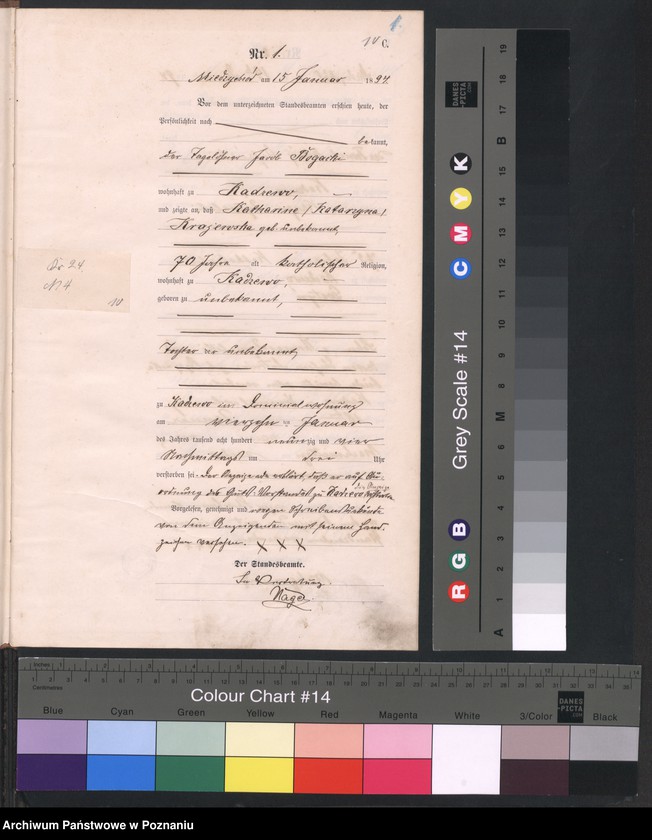 1.
10 C.
Nr. 1.
am 15 Januar 1894.
Vor dem unterzeichneten Standesbeamten erschien heute, der
Persönlichkeit nach
bekannt,
der Tagelöhner Jacob Bogacki
wohnhaft zu Kadzewo,
und zeigte an, daß Katharine /Katarzyna/
Krajewska geb. unbekannt
70 Jahre alt katholischer Religion,
wohnhaft zu Kadzewo,
geboren zu unbekannt,
Tochter der unbekannt
zu Kadzewo im Dominialwohnung
am vierzehn ten Januar
des Jahres tausend acht hundert neunzig und vier
Nachmittags um drei Uhr
verstorben sei. Der Anzeigende erklärt, daß er auf An-
ordnung des Guts-Vorstandes zu Kadzewo
Vorgelesen, genehmigt und wegen Schreibensunkunde
von dem Anzeigenden mit seinem Hand-
zeichen versehen. X X X
Der Standesbeamte.
In Vertretung
Nage
24
N 4
10
DANES
-PICTA
.COM
Grey Scale #14
R G B
C M Y K
A 1 2 3 4 5 6 M 8 9 10 11 12 13 14 15 B 17 18 19
Inches 1 2 3 4 5 6 7 8 9 10 11 12 13 14
Centimetres
Colour Chart #14
Blue Cyan Green Yellow Red Magenta White 3/Color Black
DANES
-PICTA
.COM
Archiwum Państwowe w Poznaniu